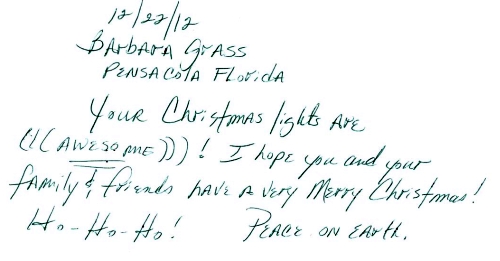 12/22/12
Barbara Grass
Pensacola Florida
Your Christmas lights are
(((AWESOME)))! I hope you and your
family & friends have a very Merry Christmas!
Ho-Ho-Ho! Peace on Earth.